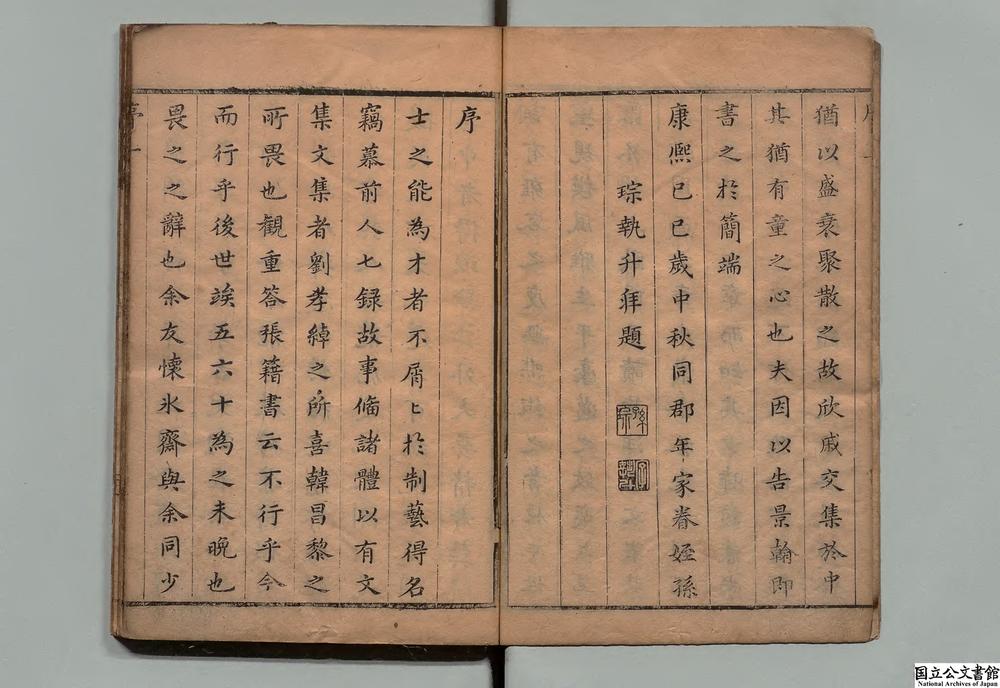 猶以盛衰聚散之故欣戚交集於中
其猶有童之心也夫因以告景翰即
書之於簡端
康熈己巳歲中秋同郡年家眷姪孫
琮執升拜題
序
士之能為才者不屑〻於制藝得名
竊慕前人七録故事偹諸體以有文
集文集者劉孝綽之所喜韓昌黎之
所畏也觀重答張籍書云不行乎今
而行乎後世竢五六十為之未晩也
畏之之辭也余友懷氷齋與余同少
序 一
国立公文書館
National Archives of Japan